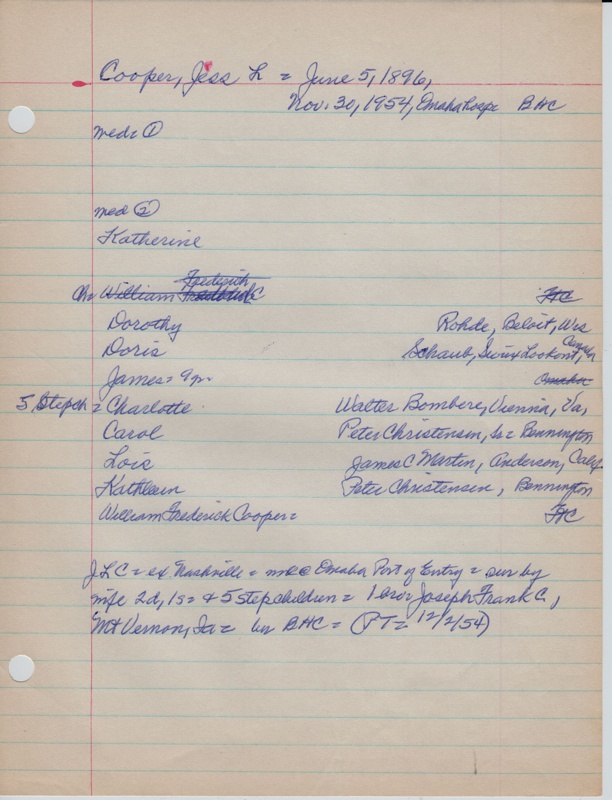 Cooper, Jess L = June 5, 1896,
Nov. 30, 1954, Omaha hosp BHC
med = ①
med ②
Katherine
Ch = William Frederick C FHC
Dorothy Rohde, Beloit, Wis
Doris Schaub, Sioux Lookout, Canada
James = 9 Omaha
5 Stepch = Charlotte Walter Bombere, Vienna, Va,
Carol Peter Christensen, Bennington
Lois James C Martin, Anderson, Calif
Kathleen Peter Christensen, Bennington
William Frederick Cooper = FHC
JLC = ex Nashville = Omaha Port of Entry = sur by
wife 2d, 1s = & 5 stepchildren = 1 bro Joseph Frank C,
Mt Vernon, Ia = by BHC = (PT = 12/2/54)